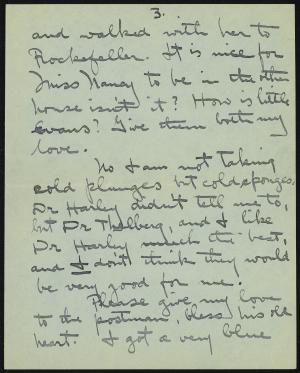 3.
and walked with her to
Rockefeller. It is nice for
Miss Nancy to be in the other
house isn't it? How is little
Evans? Give them both my
love.
No I am not taking
cold plunges but cold sponges,
Dr Harley didn't tell me to,
but Dr Thelberg, and I like
Dr Harley much the best,
and I don't think they would
be very good for me.
Please give my love
to the postman, bless his old
heart. I got a very blue